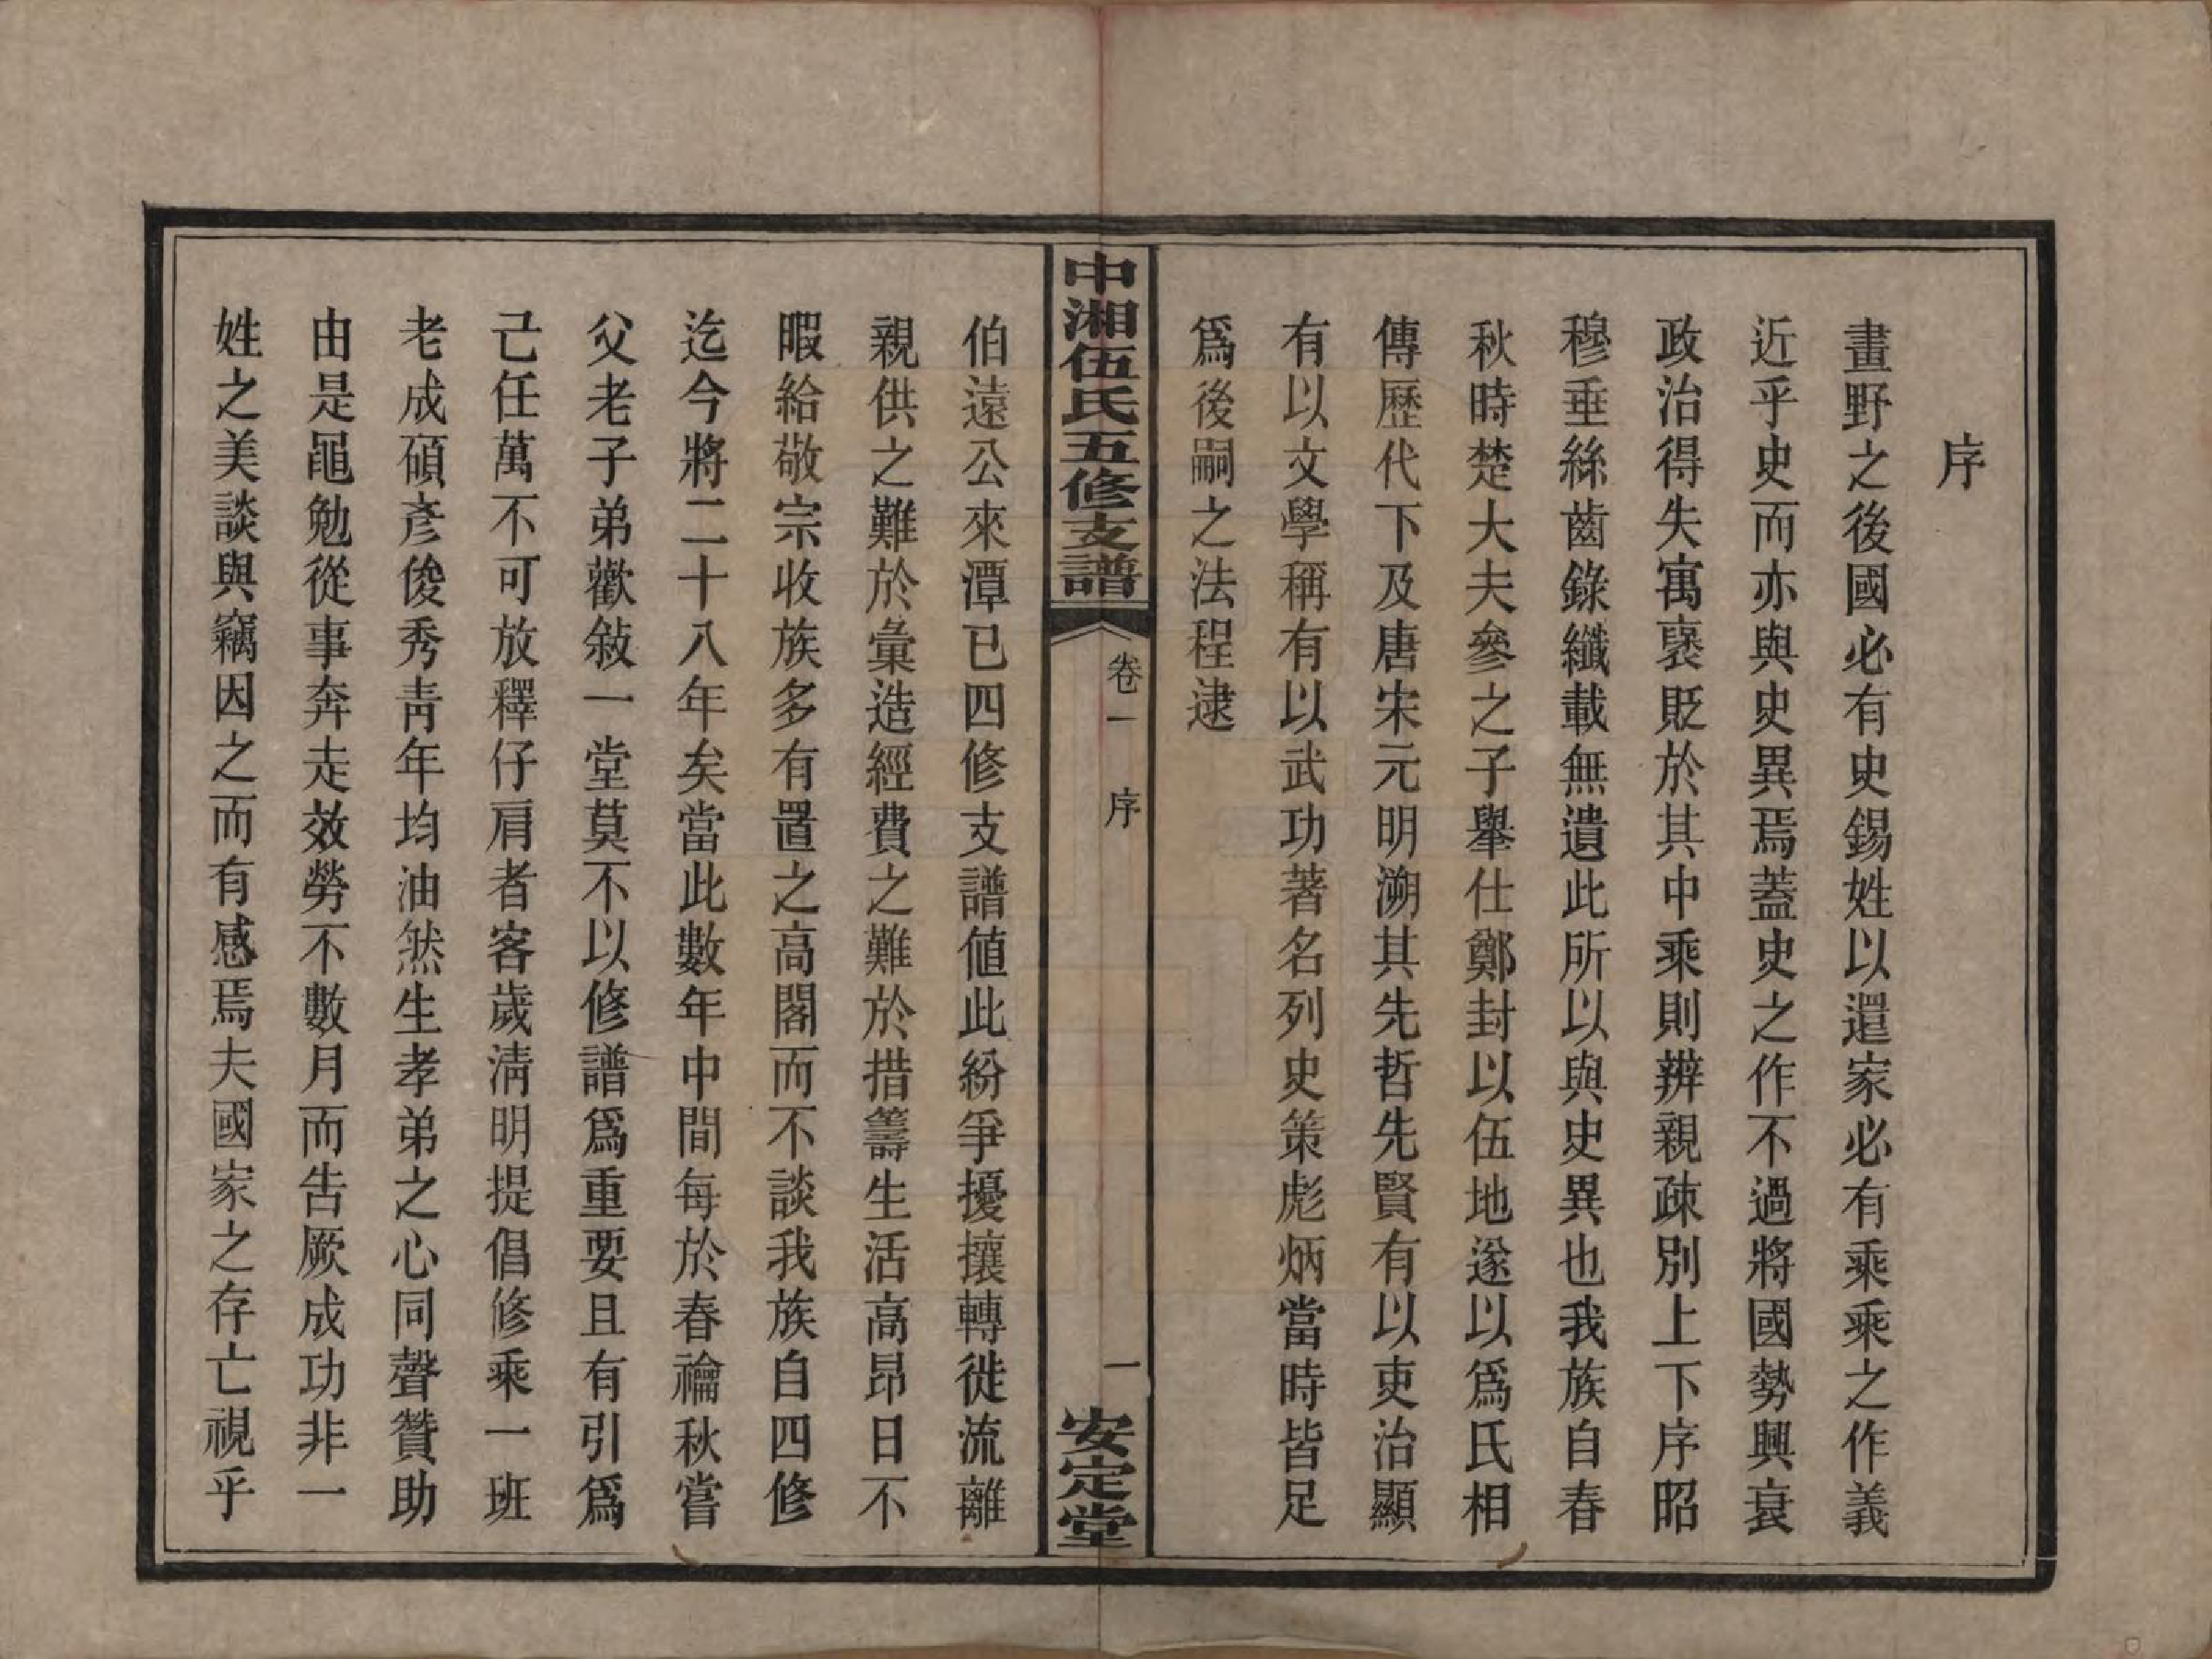 序
畫野之後國必有史錫姓以還家必有乘乘之作義
近乎史而亦與史異焉蓋史之作不過將國勢興衰
政治得失寓褒貶於其中乘則辨親疎別上下序昭
穆垂絲齒錄纖載無遺此所以與史異也我族自春
秋時楚大夫參之子舉仕鄭封以伍地遂以爲氏相
傳歷代下及唐宋元明溯其先哲先賢有以吏治顯
有以文學稱有以武功著名列史策彪炳當時皆足
爲後嗣之法程逮
中湘伍氏五修支譜 卷一 序 一 安定堂
伯遠公來潭已四修支譜値此紛爭擾攘轉徙流離
親供之難於彙造經費之難於措籌生活高昻日不
暇給敬宗收族多有置之高閣而不談我族自四修
迄今將二十八年矣當此數年中間每於春禴秋嘗
父老子弟歡敍一堂莫不以修譜爲重要且有引爲
己任萬不可放釋仔肩者客歲淸明提倡修乘一班
老成碩彥俊秀靑年均油然生孝弟之心同聲贊助
由是黽勉從事奔走效勞不數月而告厥成功非一
姓之美談與竊因之而有感焉夫國家之存亡視乎